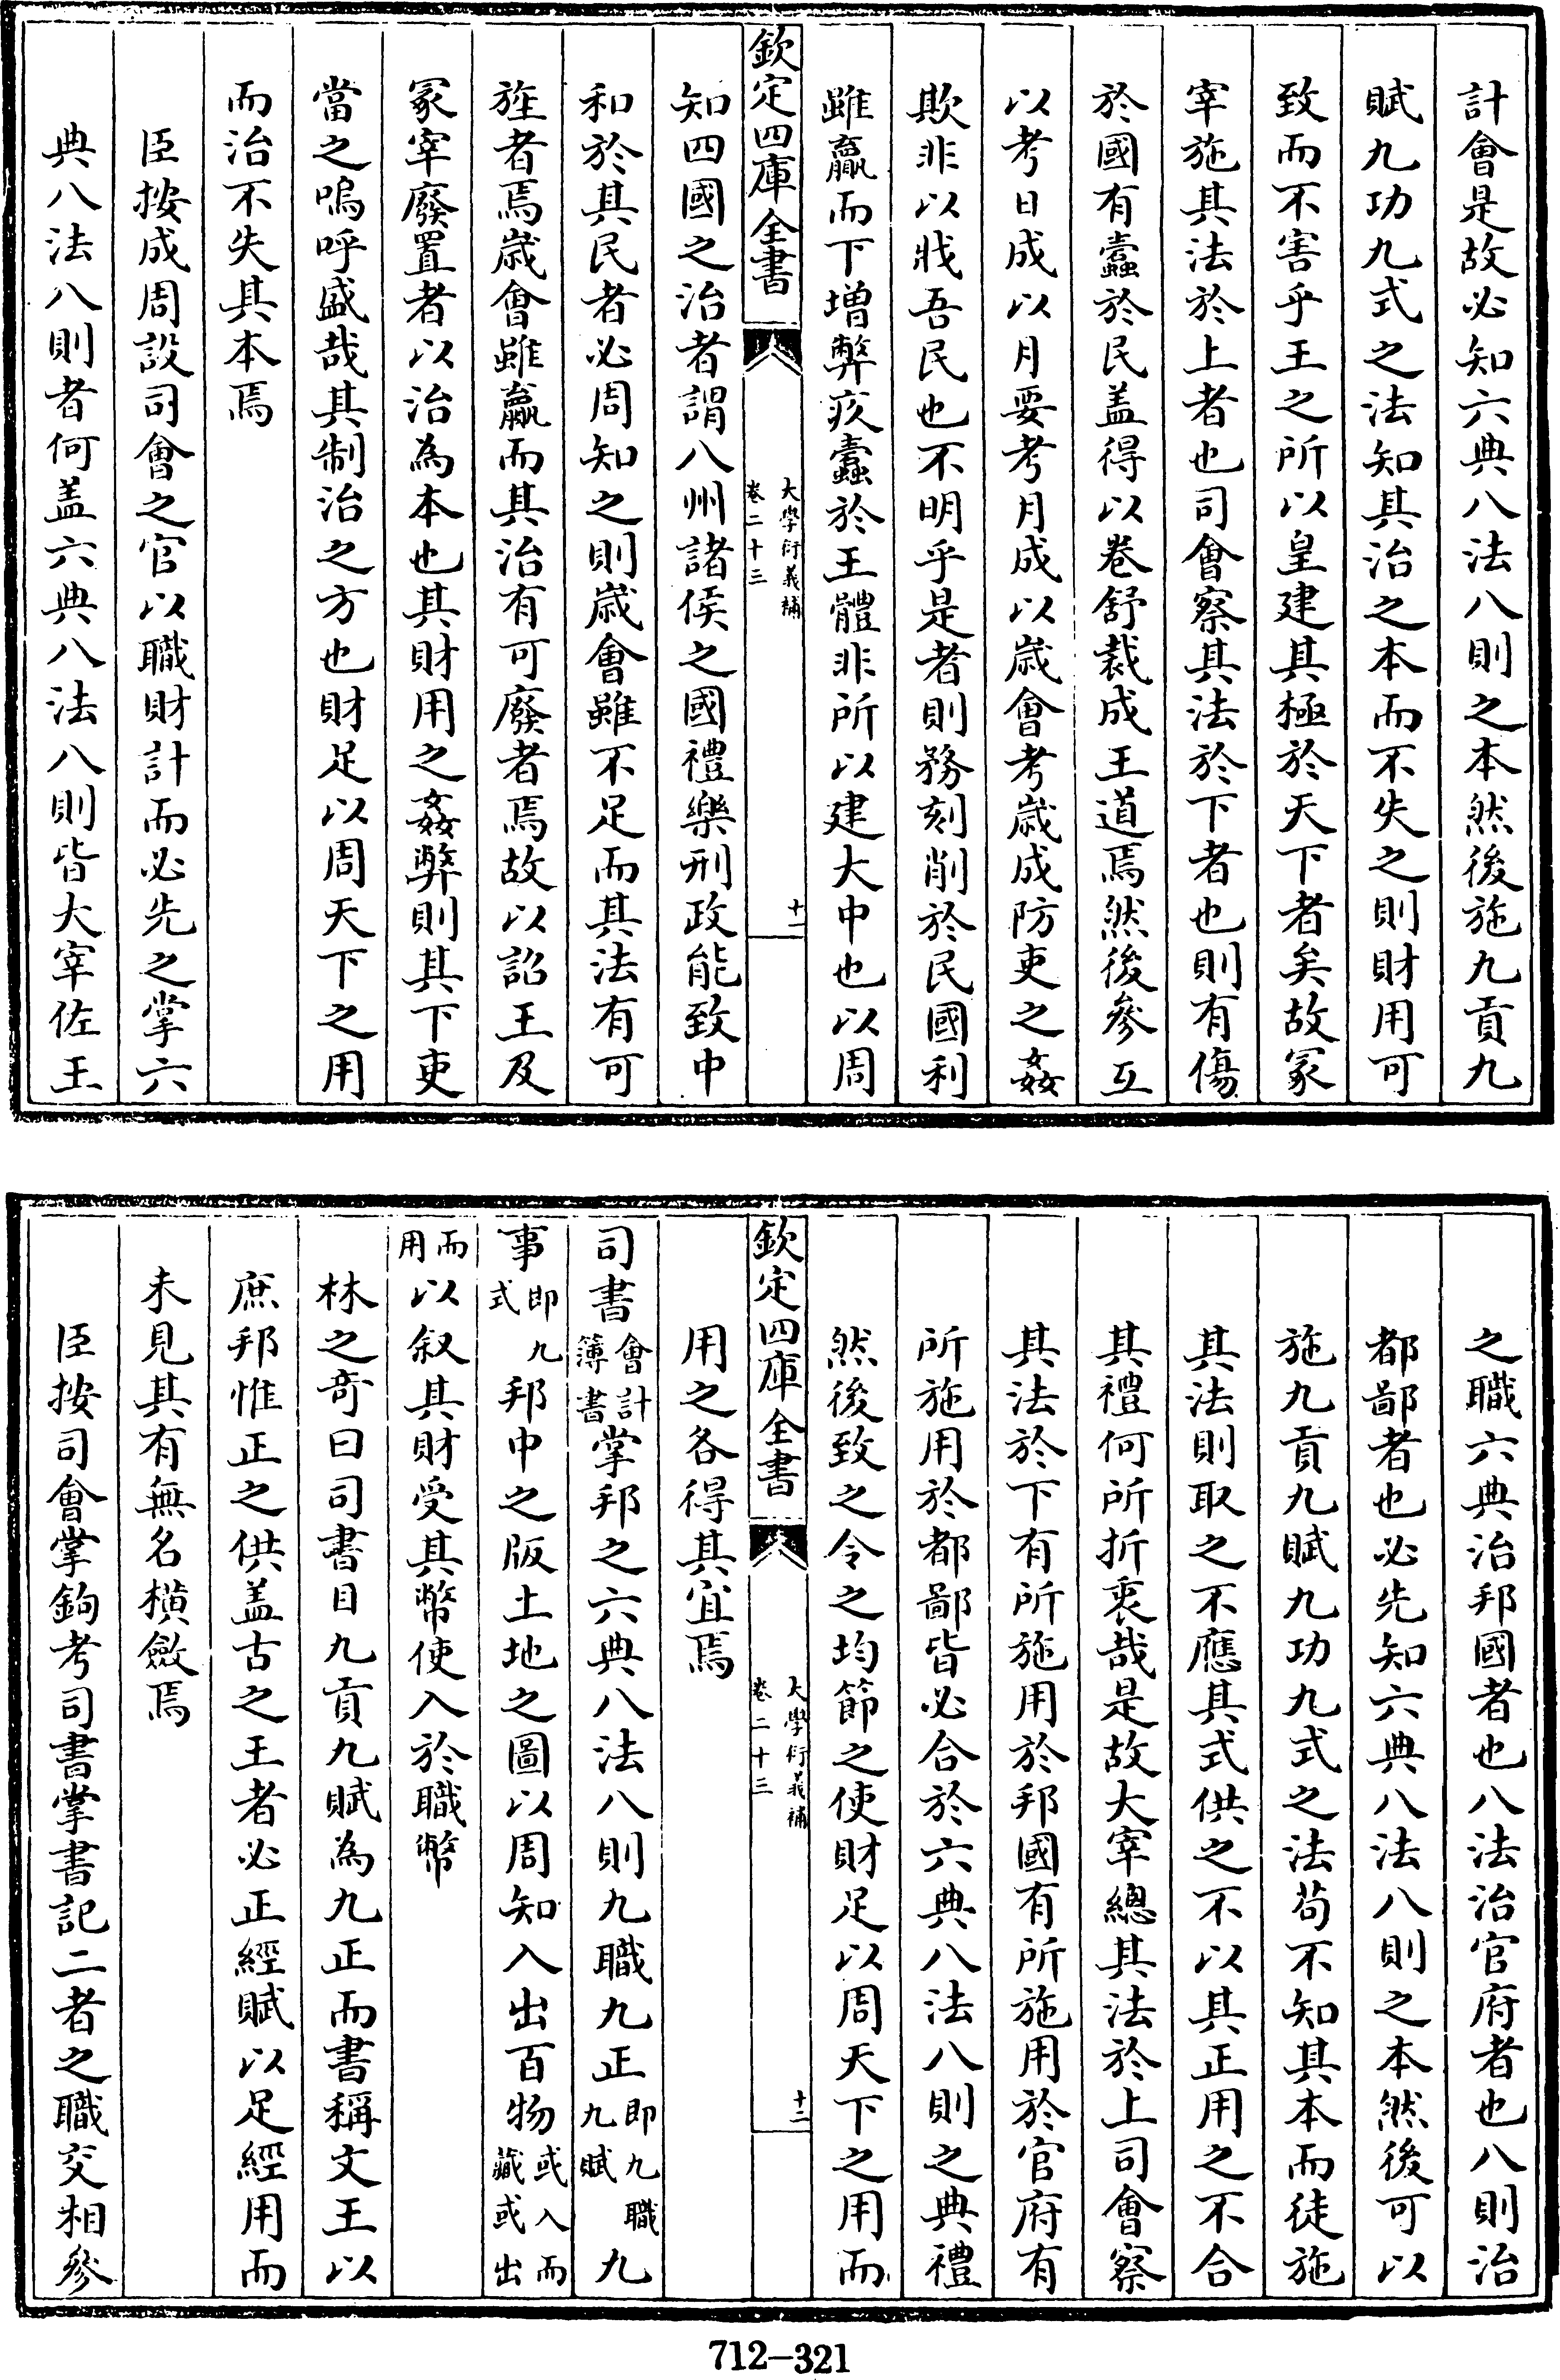 計會是故必知六典八法八則之本然後施九貢九
賦九功九式之法知其治之本而不失之則財用可
致而不害乎王之所以皇建其極於天下者矣故冢
宰施其法於上者也司會察其法於下者也則有傷
於國有蠧於民盖得以卷舒裁成王道焉然後參互
以考日成以月要考月成以歲會考歲成防吏之姦
欺非以戕吾民也不明乎是者則務刻削於民國利
雖贏而下增弊疚蠧於王體非所以建大中也以周
欽定四庫全書
大學衍義補
卷二十三
十一
知四國之治者謂八州諸侯之國禮樂刑政能致中
和於其民者必周知之則歲會雖不足而其法有可
旌者焉歲會雖贏而其治有可廢者焉故以詔王及
冢宰廢置者以治為本也其財用之姦弊則其下吏
當之嗚呼盛哉其制治之方也財足以周天下之用
而治不失其本焉
臣按成周設司會之官以職財計而必先之掌六
典八法八則者何盖六典八法八則皆大宰佐王
之職六典治邦國者也八法治官府者也八則治
都鄙者也必先知六典八法八則之本然後可以
施九貢九賦九功九式之法茍不知其本而徒施
其法則取之不應其式供之不以其正用之不合
其禮何所折衷哉是故大宰總其法於上司會察
其法於下有所施用於邦國有所施用於官府有
所施用於都鄙皆必合於六典八法八則之典禮
然後致之令之均節之使財足以周天下之用而
欽定四庫全書
大學衍義補
卷二十三
十二
用之各得其宜焉
司書會計簿書掌邦之六典八法八則九職九正即九職九賦九
事即九式邦中之版土地之圖以周知入出百物或入而藏或出
而用以叙其財受其幣使入於職幣
林之奇曰司書目九貢九賦為九正而書稱文王以
庶邦惟正之供盖古之王者必正經賦以足經用而
未見其有無名橫斂焉
臣按司會掌鉤考司書掌書記二者之職交相參
712-321